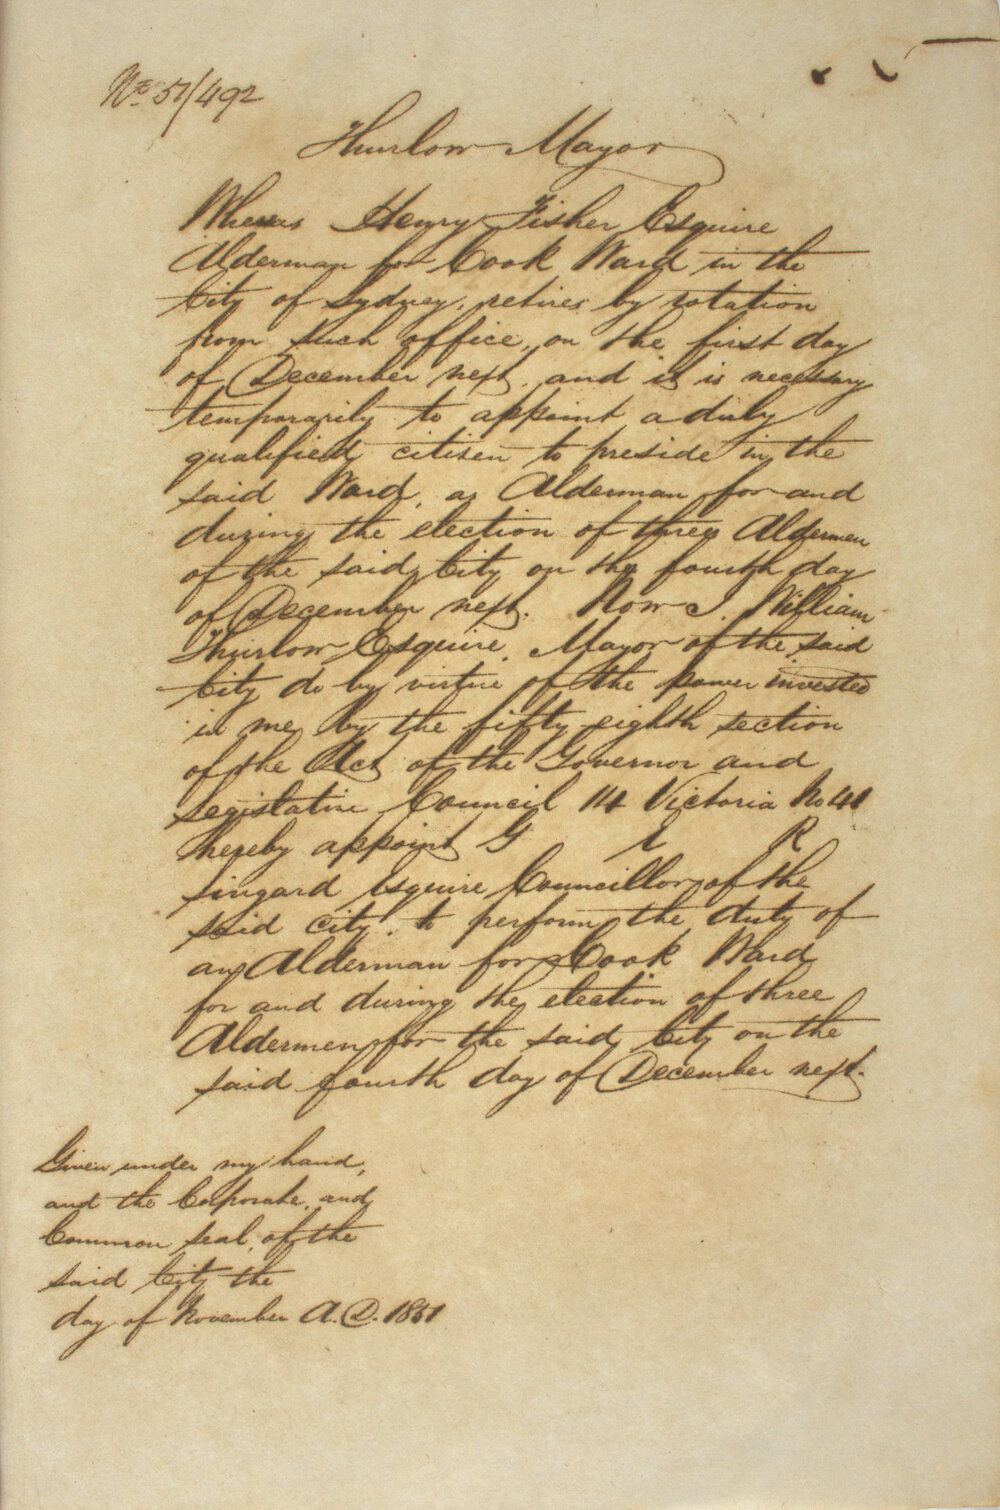 No 51/492
Thurlow Mayor
Whereas Henry Fisher Esquire
Alderman for Cook Ward in the
City of Sydney, retires by rotation
from such office, on the first day
of December next, and it is necessary
temporarily to appoint a duly
qualified citizen to preside in the
said Ward, as Alderman for and
during the election of three Aldermen
of the said City on the fourth day
of December next. Now I, William
Thurlow Esquire, Mayor of the said
City do by virtue of the power invested
in me by the fifty eighth section
of the Act of the Governor and
Legislative Council 14 Victoria No 41
hereby appoint G E R
Singard Esquire Councillor of the
said City, to perform the duty of
an Alderman for Cook Ward
for and during the election of three
Aldermen for the said City on the
said fourth day of December next.
Given under my hand,
and the Corporate, and
Common seal, of the
said City the
day of November A.D. 1851